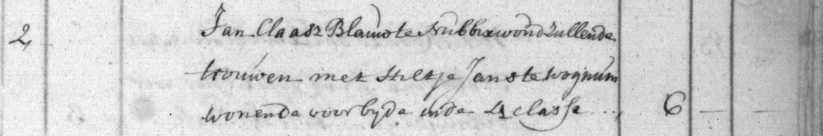 2 Jan Claasz Blauw te Nibbixwoud zullende
trouwen met Hiltje Jans te wognum
wonende voor byde inde 4 classe .., 6 — —